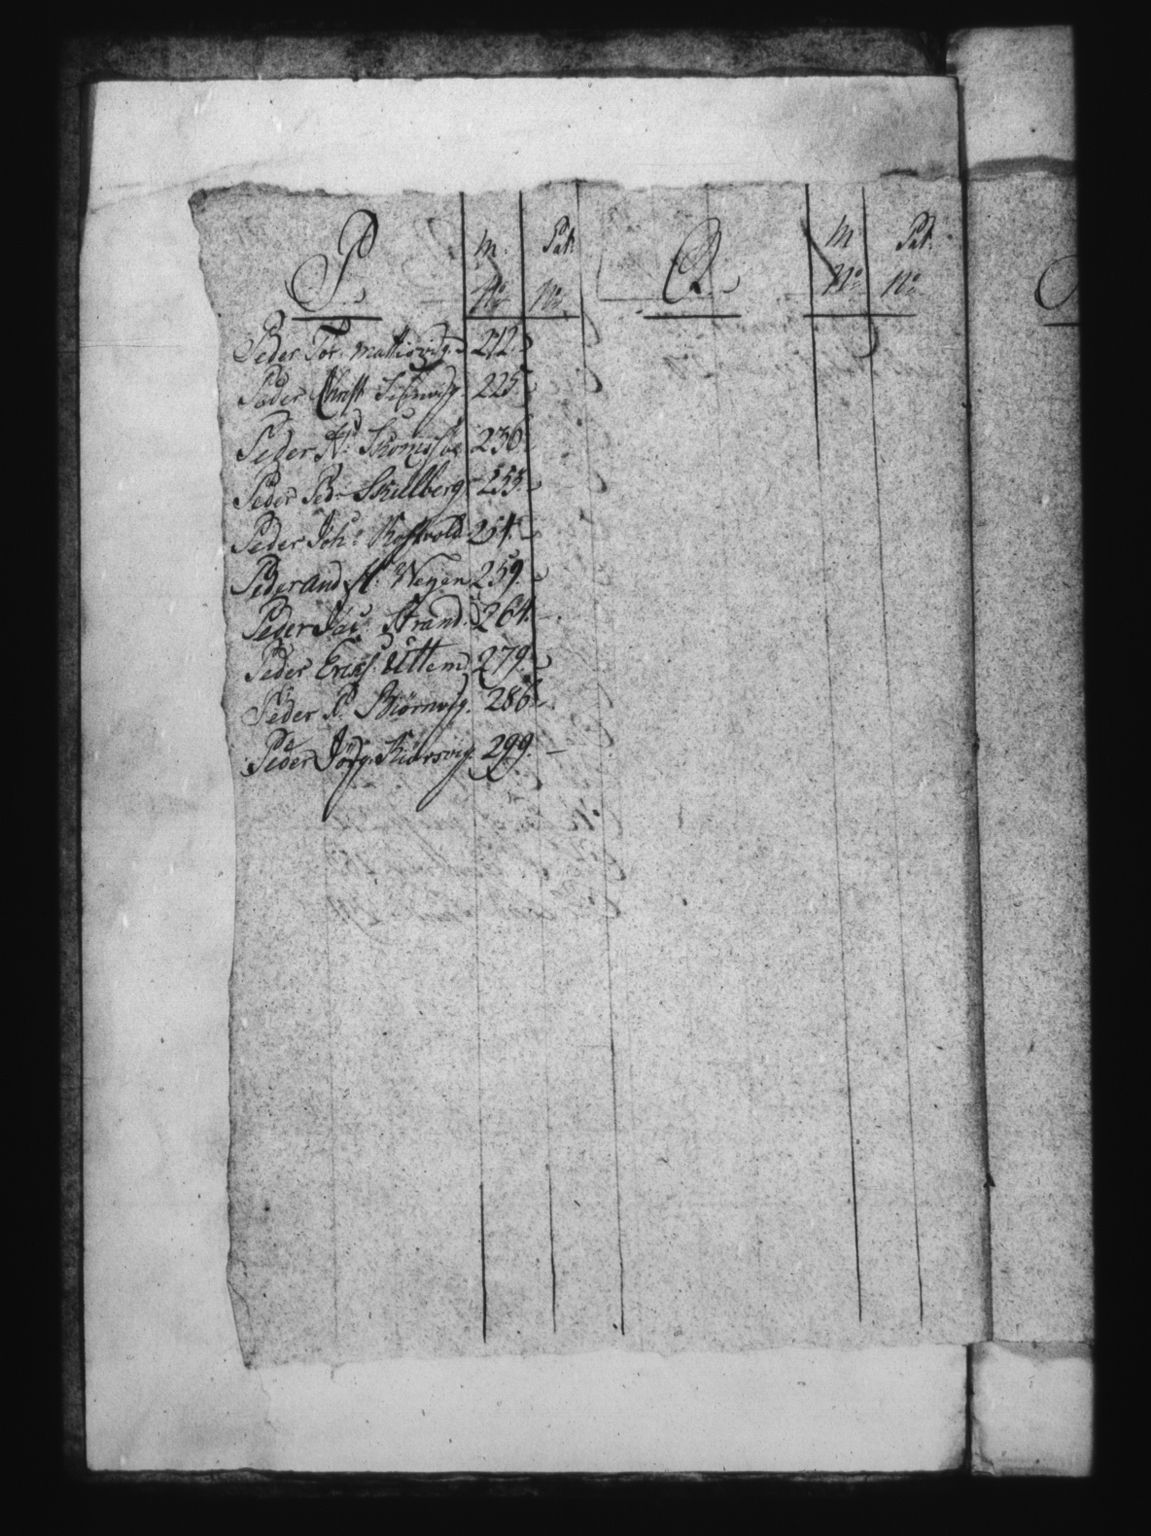 P
M. No
Pat. No
Q
M. No
Pat. No
Peder Tor. 212.
Peder Christ 225
Peder N. 236
Peder Ped. Skillberg 253
Peder Joh. 254.
Peder And. Weyen 259.
Peder Jac. Strand. 264.
Peder Erichs. Uttem 279.
Peder P. Biörnvig. 286
Peder Jörg. 299 —